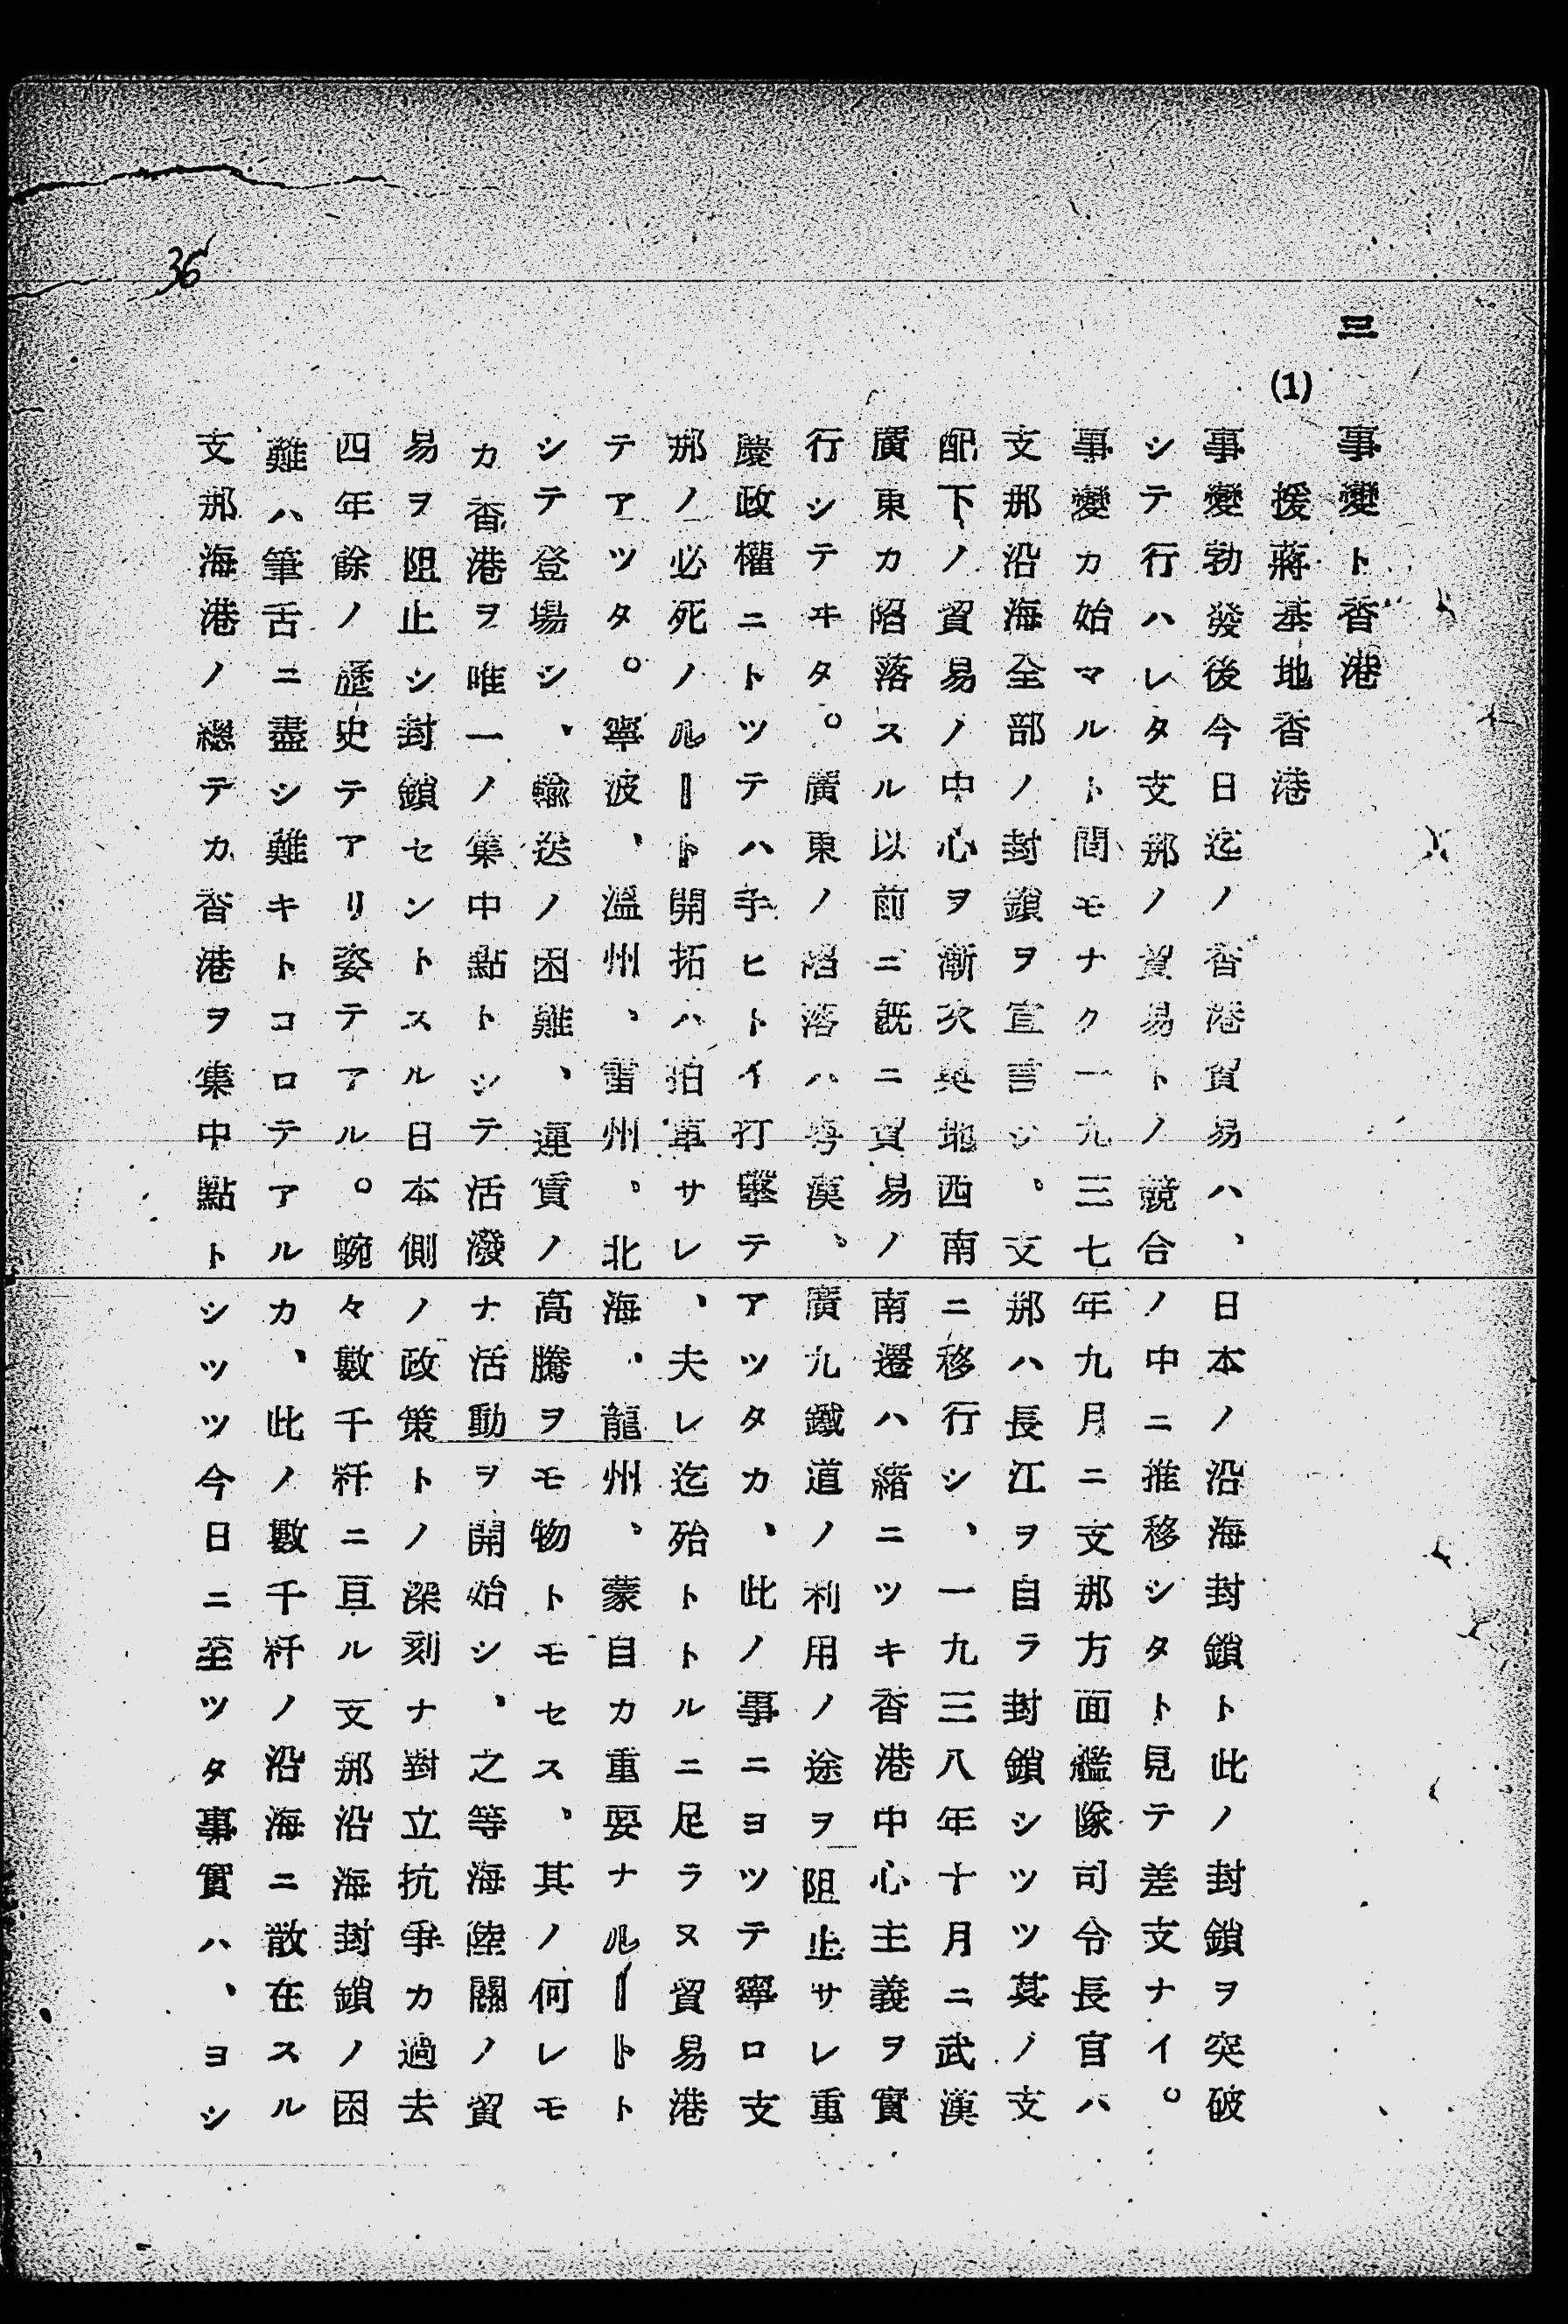 36
三　事變ト香港
(1)　援蔣基地香港
事變勃發後今日迄ノ香港貿易ハ、日本ノ沿海封鎖ト此ノ封鎖ヲ突破
シテ行ハレタ支那ノ貿易トノ競合ノ中ニ推移シタト見テ差支ナイ。
事變カ始マルト間モナク一九三七年九月ニ支那方面艦隊司令長官ハ
支那沿海全部ノ封鎖ヲ宣言シ、支那ハ長江ヲ自ラ封鎖シツツ其ノ支
配下ノ貿易ノ中心ヲ漸次奥地西南ニ移行シ、一九三八年十月ニ武漢
廣東カ陷落スル以前ニ既ニ貿易ノ南遷ハ緒ニツキ香港中心主義ヲ實
行シテヰタ。廣東ノ陷落ハ粤漢、廣九鐵道ノ利用ノ途ヲ阻止サレ重
慶政權ニトツテハ手ヒトイ打擊テアツタカ、此ノ事ニヨツテ寧ロ支
那ノ必死ノルート開拓ハ拍車サレ、夫レ迄殆トトルニ足ラヌ貿易港
テアツタ。寧波、溫州、雷州、北海、龍州、蒙自カ重要ナルートト
シテ登場シ、輸送ノ困難、運賃ノ高騰ヲモ物トモセス、其ノ何レモ
カ香港ヲ唯一ノ集中點トシテ活潑ナ活動ヲ開始シ、之等海陸關ノ貿
易ヲ阻止シ封鎖セントスル日本側ノ政策トノ深刻ナ對立抗爭カ過去
四年餘ノ歷史テアリ姿テアル。蜿々數千粁ニ亘ル支那沿海封鎖ノ困
難ハ筆舌ニ盡シ難キトコロテアルカ、此ノ數千粁ノ沿海ニ散在スル
支那海港ノ總テカ香港ヲ集中點トシツツ今日ニ至ツタ事實ハ、ヨシ